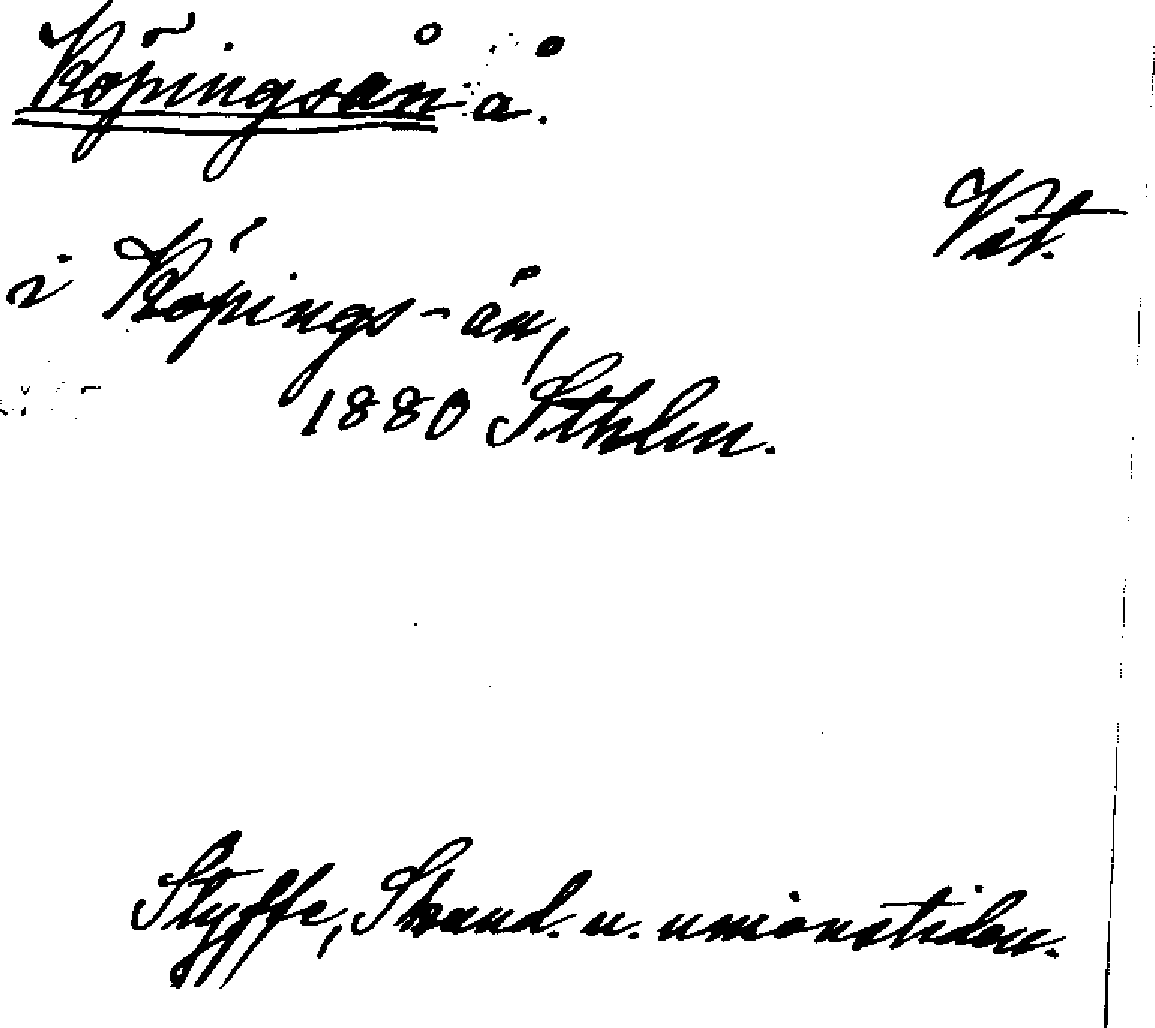 Köpingsån å.
Vst.
i Köpings-ån,
1880 Sthlm.
Styffe, Skand. u. unionstiden.